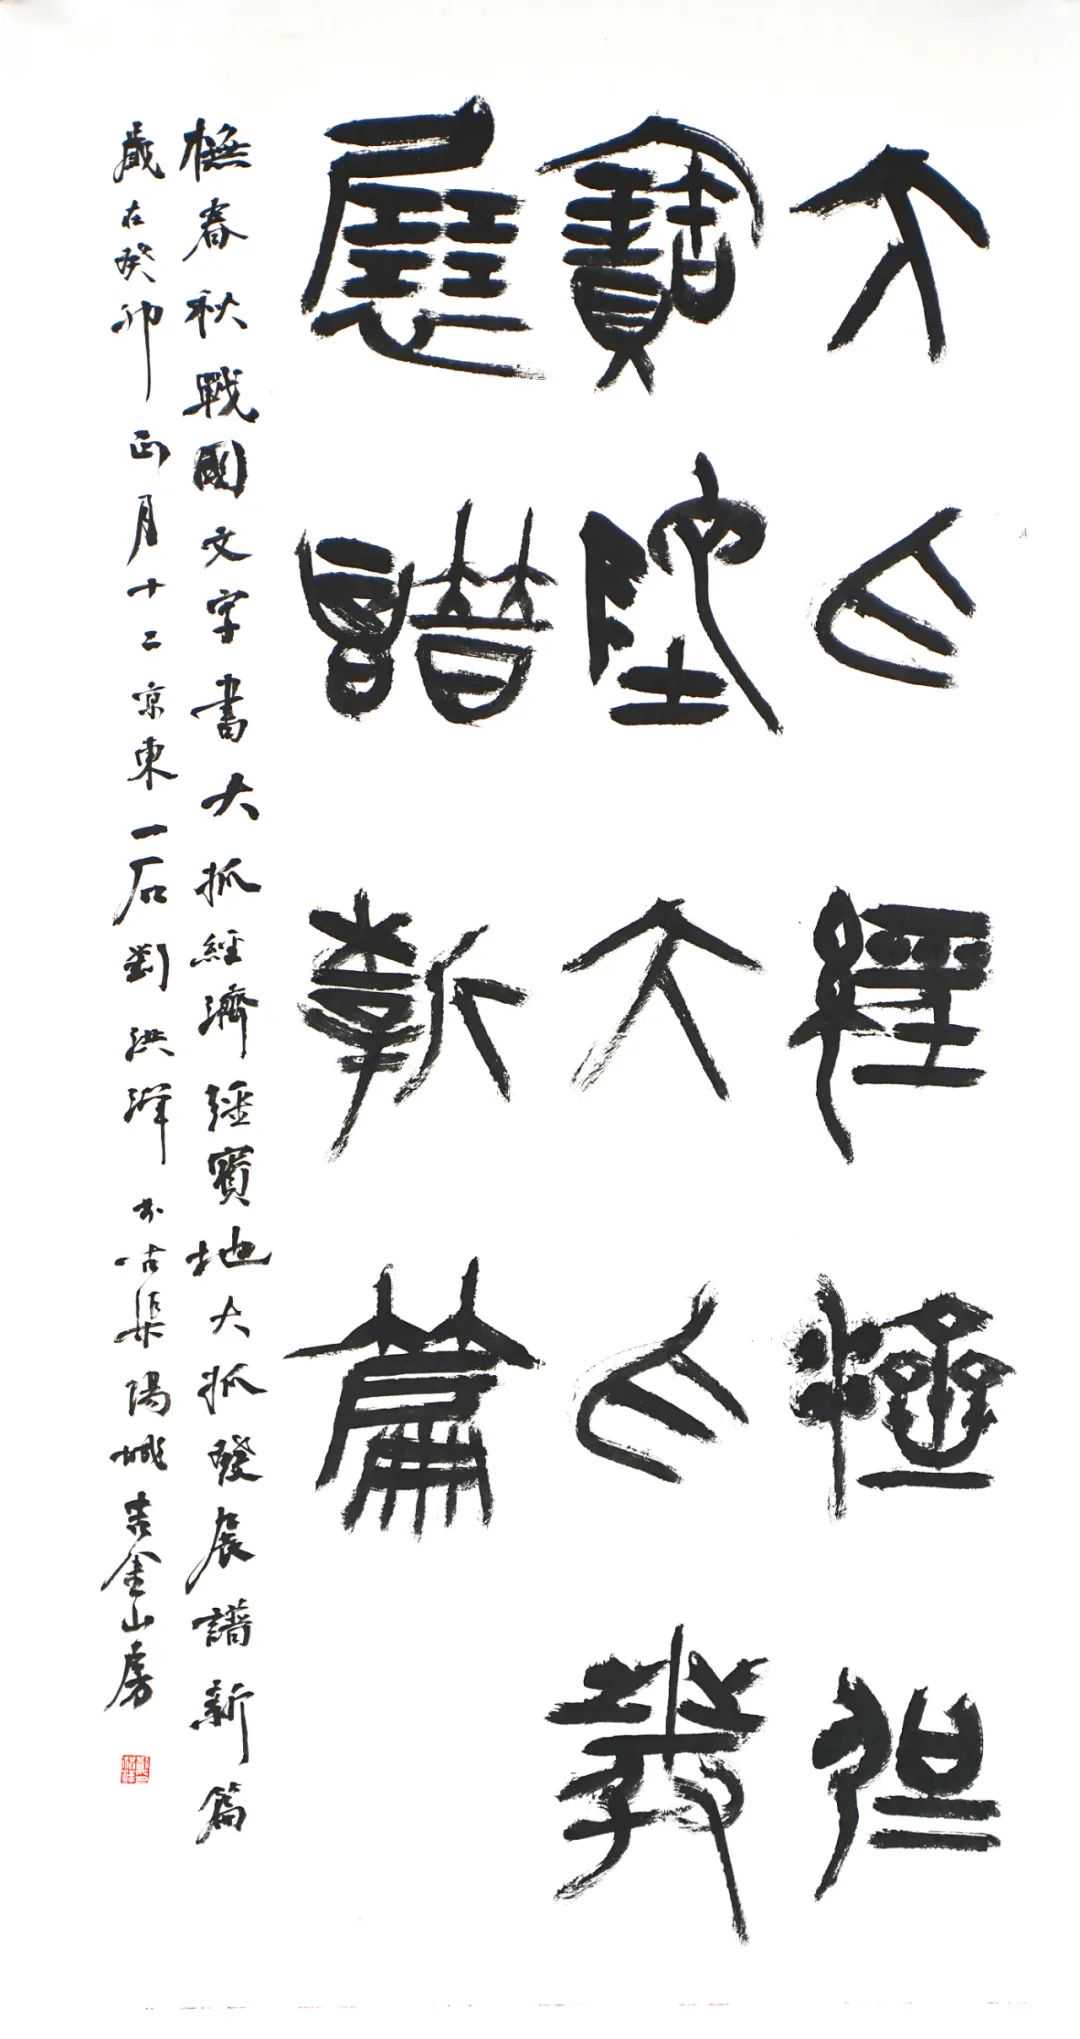 大抓經濟彊
寶地大抓發
展譜新篇
橅春秋戰國文字書大抓經濟彊寶地大抓發展譜新篇
歲在癸卯正月十二京東一石劉洪澤於古渠陽城吉金山房